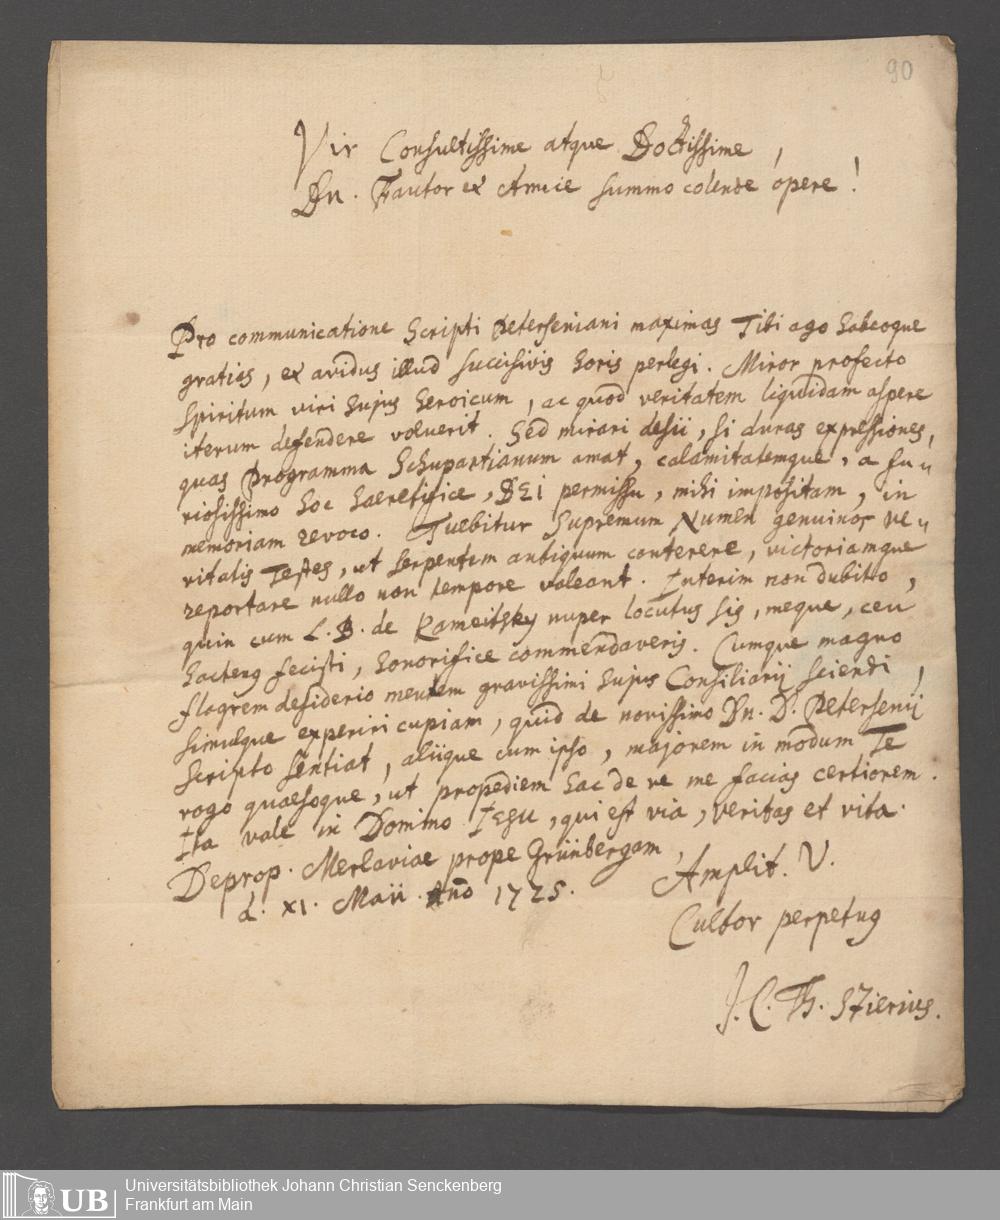 90
Vir Consultissime atque Doctissime,
Dn. Fautor et Amice summo colende opere!
Pro communicatione Scripti Peterseniani maximas Tibi ago habeoque
gratias, et avidus illud succisivis horis perlegi. Miror profecto
spiritum viri hujus heroicum, ac quod veritatem liquidam aspere
iterum defendere voluerit. Sed mirari desii, si duras expressiones,
quas Programma Schupartianum amat, calamitatemque, a fu„
riosissimo hoc haeretifice, DEI permissu, mihi impositam, in
memoriam revoco. Tuebitur Supremum Numen genuinos ve„
ritatis Testes, ut serpentem antiquum conterere, victoriamque
reportare nullo non tempore valeant. Interim non dubito,
quin cum L. B. de Kameitsky nuper locutus sis, meque, ceu
hactenq fecisti, honorifice commendaveris. Cumque magno
flagrem desiderio mentem gravissimi hujus Consiliarij sciendi,
simulque experiri cupiam, quid de novissimo Dn. D. Petersenij
scripto sentiat, aliique cum ipso, majorem in modum Te
rogo quaesoque, ut propediem hac de re me facias certiorem.
Ita vale in Domino IESU, qui est via, veritas et vita.
Deprop. Merlaviae prope Grünbergam,
d. XI. Maii Ano 1725.
Amplit. V.
Cultor perpetuq
J. C. Th. Szierius.
UB
Universitätsbibliothek Johann Christian Senckenberg
Frankfurt am Main